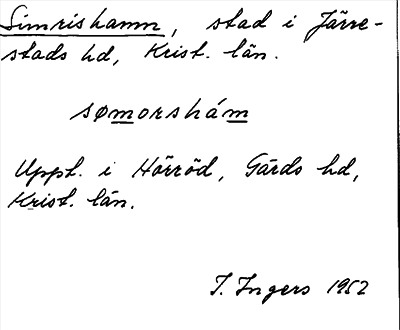 Simrishamn, stad i Järre-
stads hd, Krist. län.
sømorshám
Uppt. i Hörröd, Gärds hd,
Krist. län.
I. Ingers 1952